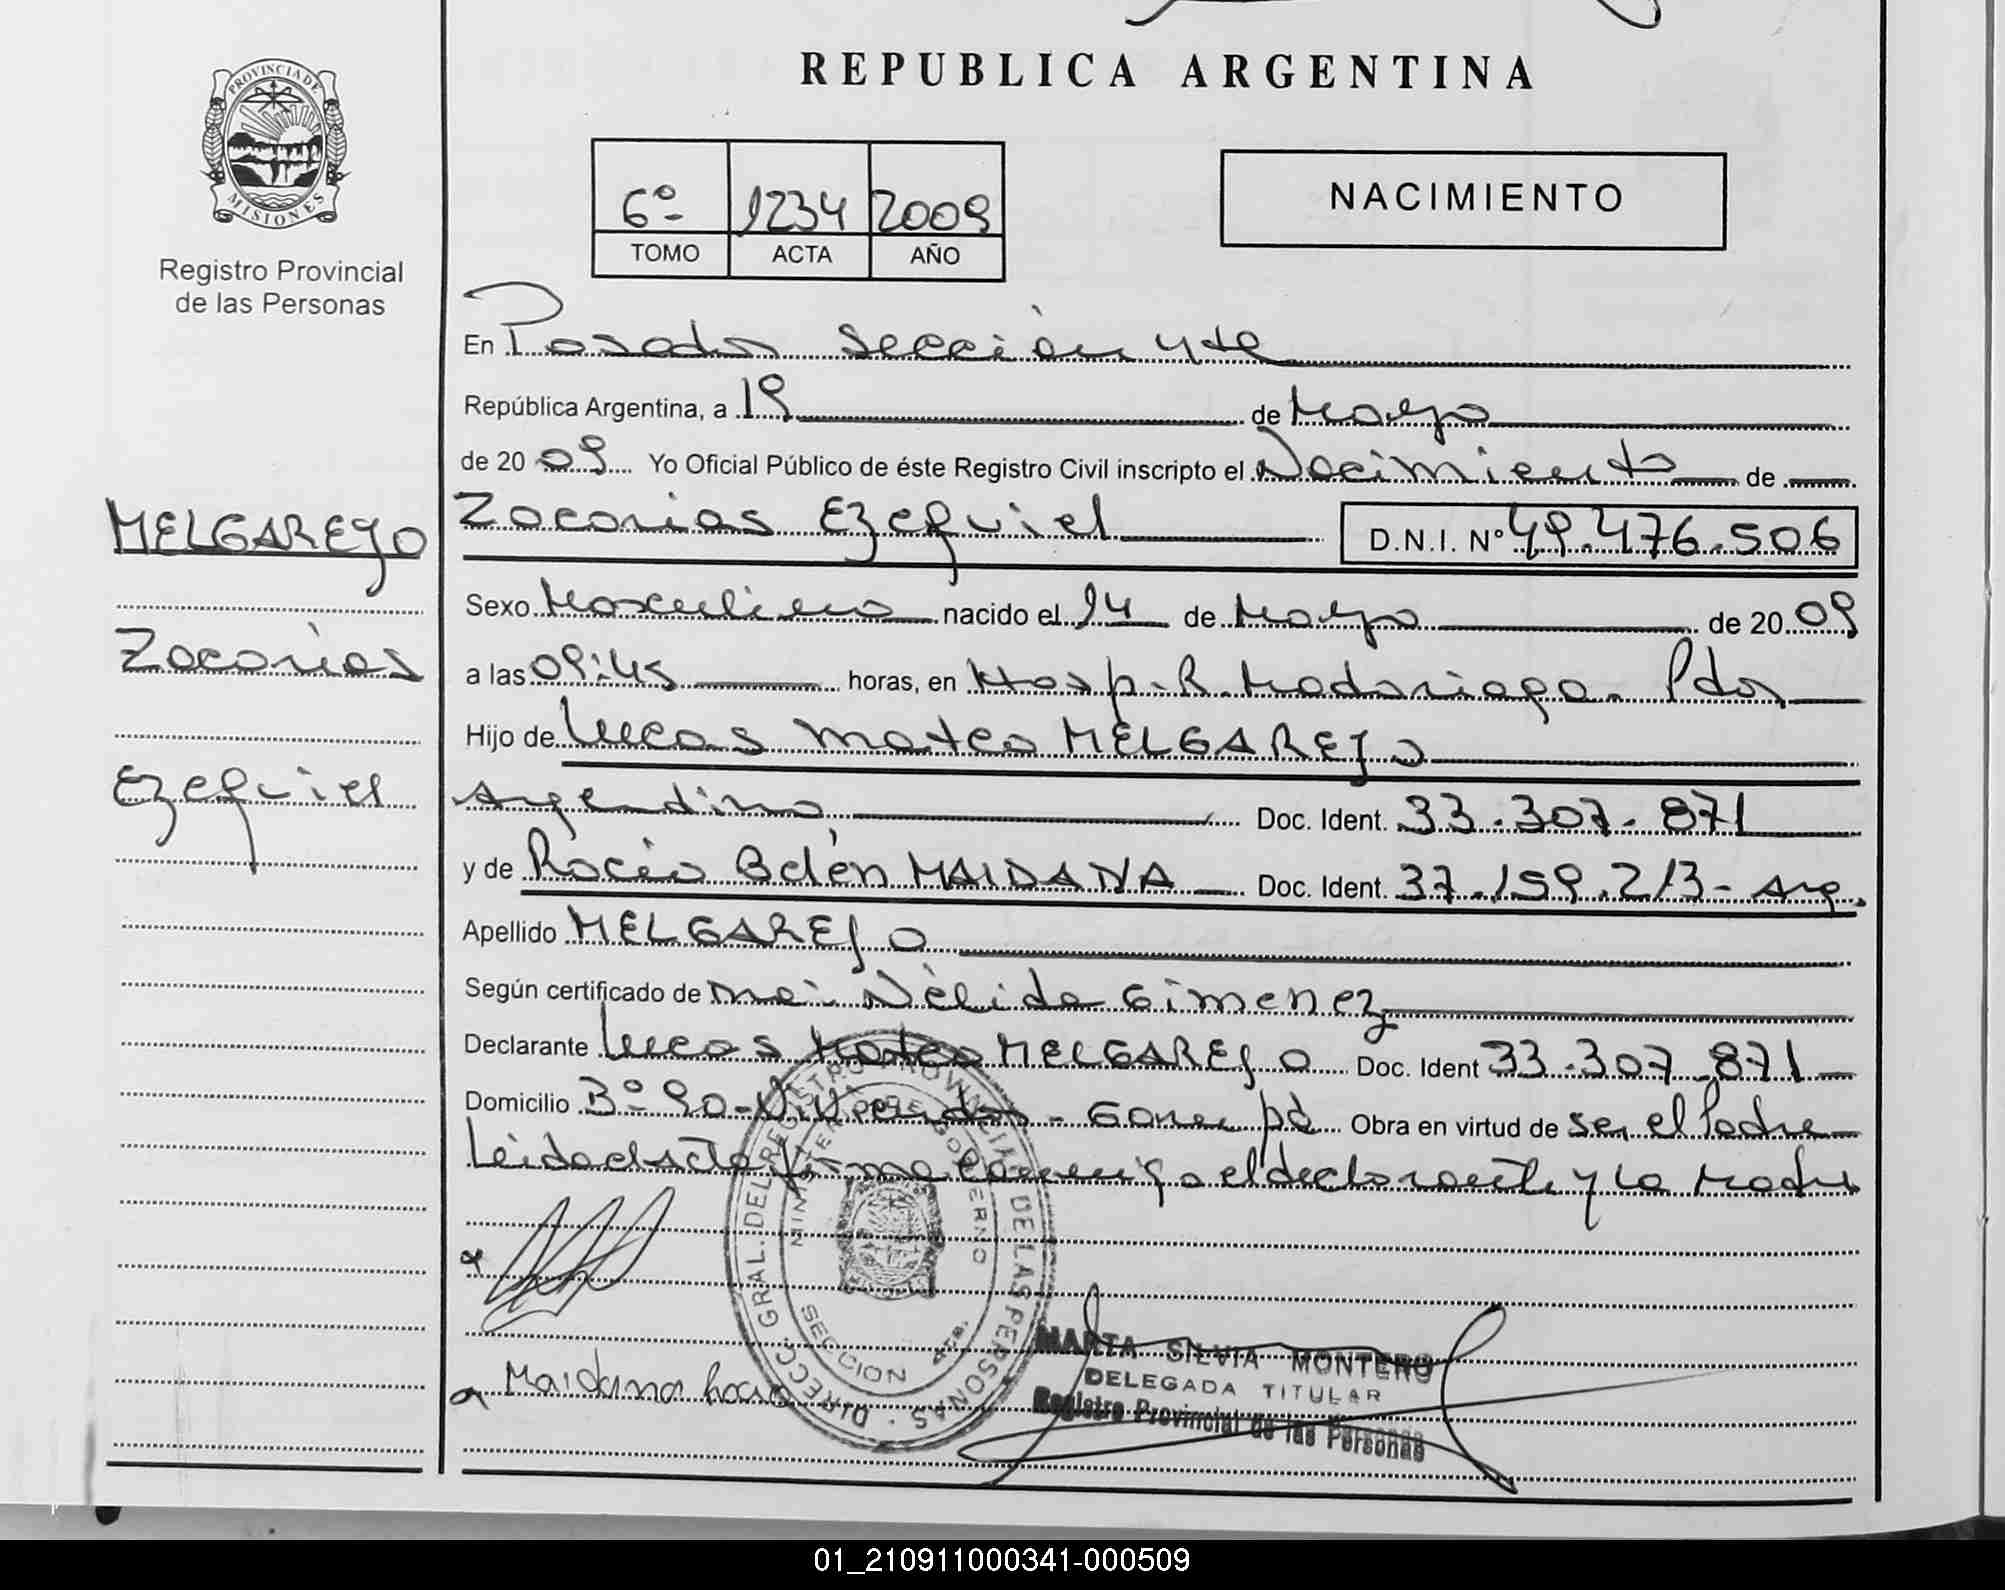 REPUBLICA ARGENTINA
PROVINCIA DE
MISIONES
Registro Provincial
de las Personas
6º 1234 2009
TOMO ACTA AÑO
NACIMIENTO
En Posadas Sección 4ta
República Argentina, a 19 de Mayo
de 20 09 Yo Oficial Público de éste Registro Civil inscripto el Nacimiento de
MELGAREJO
Zacarias
Ezequiel
Zacarias Ezequiel D.N.I. Nº 49.476.506
Sexo Masculino nacido el 14 de Mayo de 20 09
a las 09:45 horas, en Hosp. R. Madariaga. Pdas
Hijo de Lucas Mateo MELGAREJO
Argentino Doc. Ident. 33.307.871
y de Rocío Belén MAIDANA Doc. Ident. 37.159.213 - Arg.
Apellido MELGAREJO
Según certificado de Nélida Gimenez
Declarante Lucas Mateo MELGAREJO Doc. Ident 33.307.871
Domicilio Bº 90 - Viviendas - Garupá Obra en virtud de ser el Padre
Leida el acta firma conmigo el declarante y la Madre
DIRECC. GRAL. DEL REGISTRO PROVINCIAL DE LAS PERSONAS
MINISTERIO DE GOBIERNO
SECCION 4ta.
Maidana Rocio
MARTA SILVIA MONTERO
DELEGADA TITULAR
Registro Provincial de las Personas
01_210911000341-000509